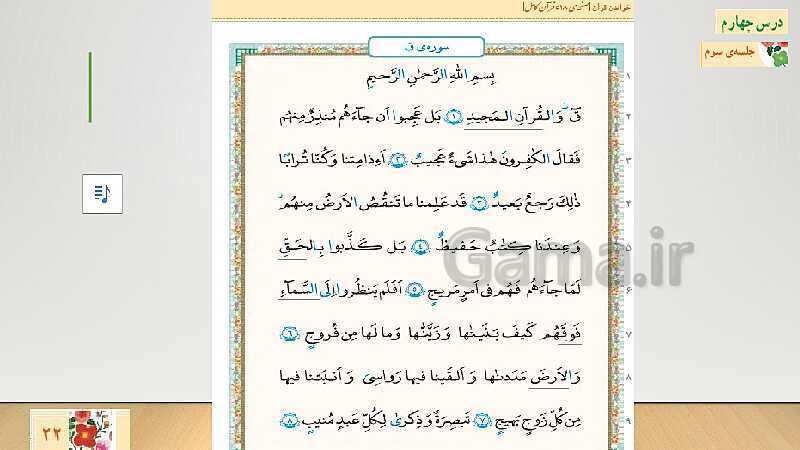 خواندن قرآن [صفحه‌ی ۵۱۸ قرآن کامل]
درس چهارم
جلسه‌ی سوم
سوره‌ی ق
۱ بِسمِ اللهِ الرَّحمٰنِ الرَّحیمِ
۲ قٓ ۚ وَ القُرآنِ المَجیدِ ﴿۱﴾ بَل عَجِبوا اَن جاءَهُم مُنذِرٌ مِنهُم
۳ فَقالَ الکٰفِرونَ هٰذا شَیءٌ عَجیبٌ ﴿۲﴾ اَءِذا مِتنا وَ کُنّا تُرابًا
۴ ذٰلِکَ رَجعٌ بَعیدٌ ﴿۳﴾ قَد عَلِمنا ما تَنقُصُ الاَرضُ مِنهُم
۵ وَ عِندَنا کِتابٌ حَفیظٌ ﴿۴﴾ بَل کَذَّبوا بِالحَقِّ
۶ لَمّا جاءَهُم فَهُم فی اَمرٍ مَریجٍ ﴿۵﴾ اَفَلَم یَنظُروا اِلَی السَّماءِ
۷ فَوقَهُم کَیفَ بَنَینٰها وَ زَیَّنّٰها وَ ما لَها مِن فُروجٍ ﴿۶﴾
۸ وَ الاَرضَ مَدَدنٰها وَ اَلقَینا فیها رَواسِیَ وَ اَنبَتنا فیها
۹ مِن کُلِّ زَوجٍ بَهیجٍ ﴿۷﴾ تَبصِرَةً وَ ذِکریٰ لِکُلِّ عَبدٍ مُنیبٍ ﴿۸﴾
Gama.ir
۲۲